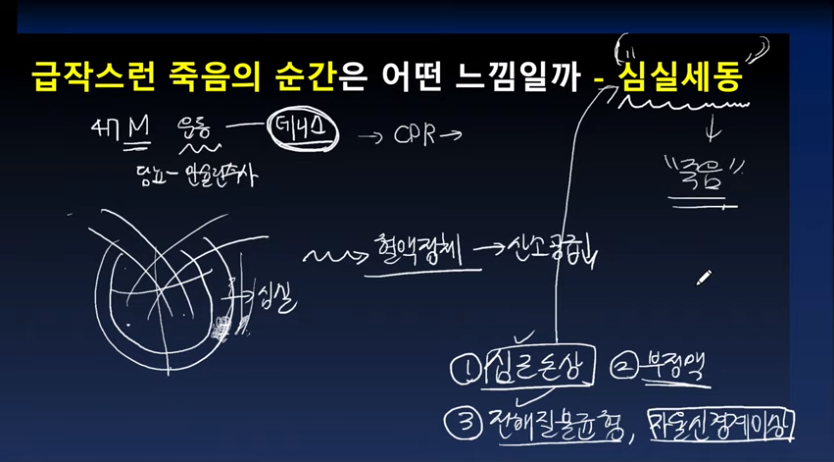 급작스런 죽음의 순간은 어떤 느낌일까 - 심실세동
47 M 운동 테니스 → CPR →
당뇨 - 인슐린주사
"죽음"
혈액정체 → 산소공급
심실
① 심근손상 ② 부정맥
③ 전해질불균형, 자율신경계이상